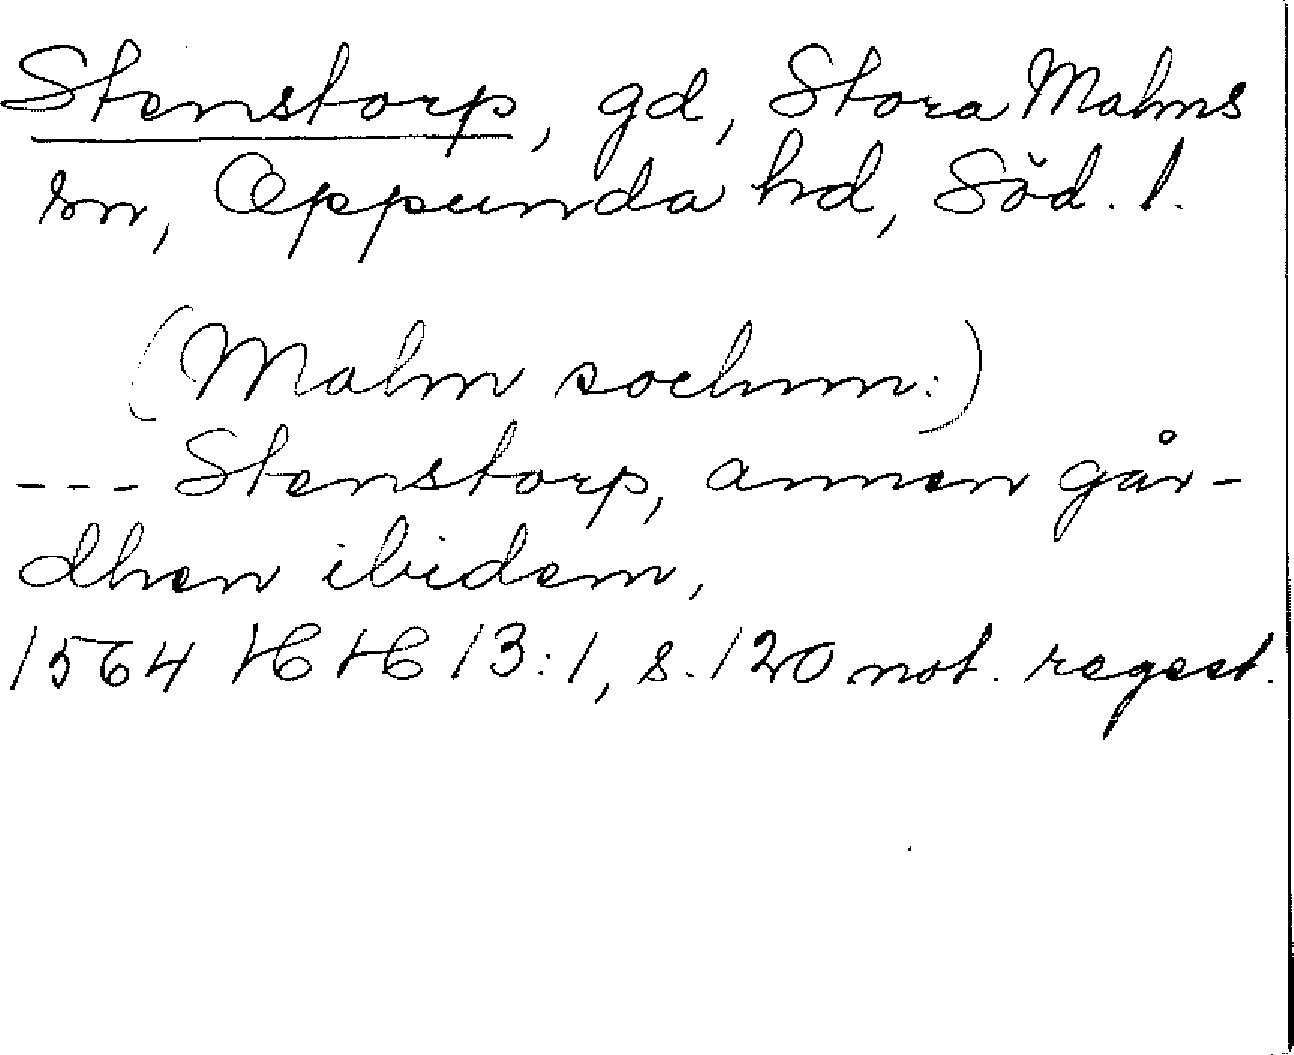 Stenstorp, gd, Stora Malms
sn, Oppunda hd, Söd. l.
(Malm sochnn:)
--- Stenstorp, annen går-
dhen ibidem,
1564 HH 13:1, s. 120 not. regest.